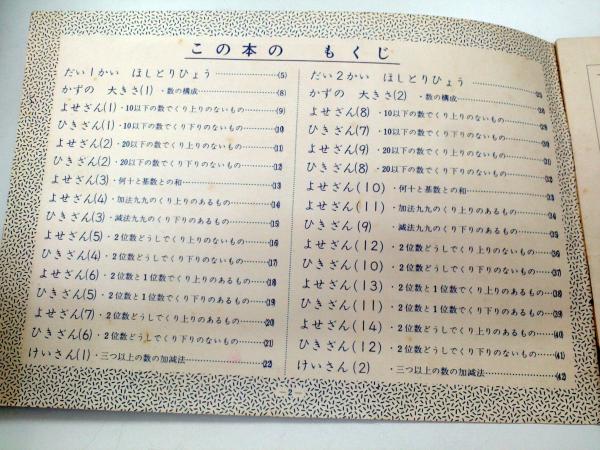 この本の もくじ
だい1かい ほしとりひょう……(5)
かずの 大きさ(1)・数の構成……(8)
よせざん(1)・10以下の数でくり上りのないもの……(9)
ひきざん(1)・10以下の数でくり下りのないもの……(10)
よせざん(2)・20以下の数でくり上りのないもの……(11)
ひきざん(2)・20以下の数でくり下りのないもの……(12)
よせざん(3)・何十と基数との和……(13)
よせざん(4)・加法九九のくり上りのあるもの……(14)
ひきざん(3)・減法九九のくり下りのあるもの……(15)
よせざん(5)・2位数どうしでくり上りのないもの……(16)
ひきざん(4)・2位数どうしでくり下りのないもの……(17)
よせざん(6)・2位数と1位数でくり上りのあるもの……(18)
ひきざん(5)・2位数と1位数でくり下りのあるもの……(19)
よせざん(7)・2位数どうしでくり上りのあるもの……(20)
ひきざん(6)・2位数どうしでくり下りのないもの……(21)
けいさん(1)・三つ以上の数の加減法……(22)
だい2かい ほしとりひょう……(25)
かずの 大きさ(2)・数の構成……(28)
よせざん(8)・10以下の数でくり上りのないもの……(29)
ひきざん(7)・10以下の数でくり下りのないもの……(30)
よせざん(9)・20以下の数でくり上りのないもの……(31)
ひきざん(8)・20以下の数でくり下りのないもの……(32)
よせざん(10)・何十と基数との和……(33)
よせざん(11)・加法九九のくり上りのあるもの……(34)
ひきざん(9)・減法九九のくり下りのあるもの……(35)
よせざん(12)・2位数どうしでくり上りのないもの……(36)
ひきざん(10)・2位数どうしでくり下りのないもの……(37)
よせざん(13)・2位数と1位数でくり上りのあるもの……(38)
ひきざん(11)・2位数と1位数でくり下りのあるもの……(39)
よせざん(14)・2位数どうしでくり上りのあるもの……(40)
ひきざん(12)・2位数どうしでくり下りのあるもの……(41)
けいさん(2)・三つ以上の数の加減法……(42)
—2—